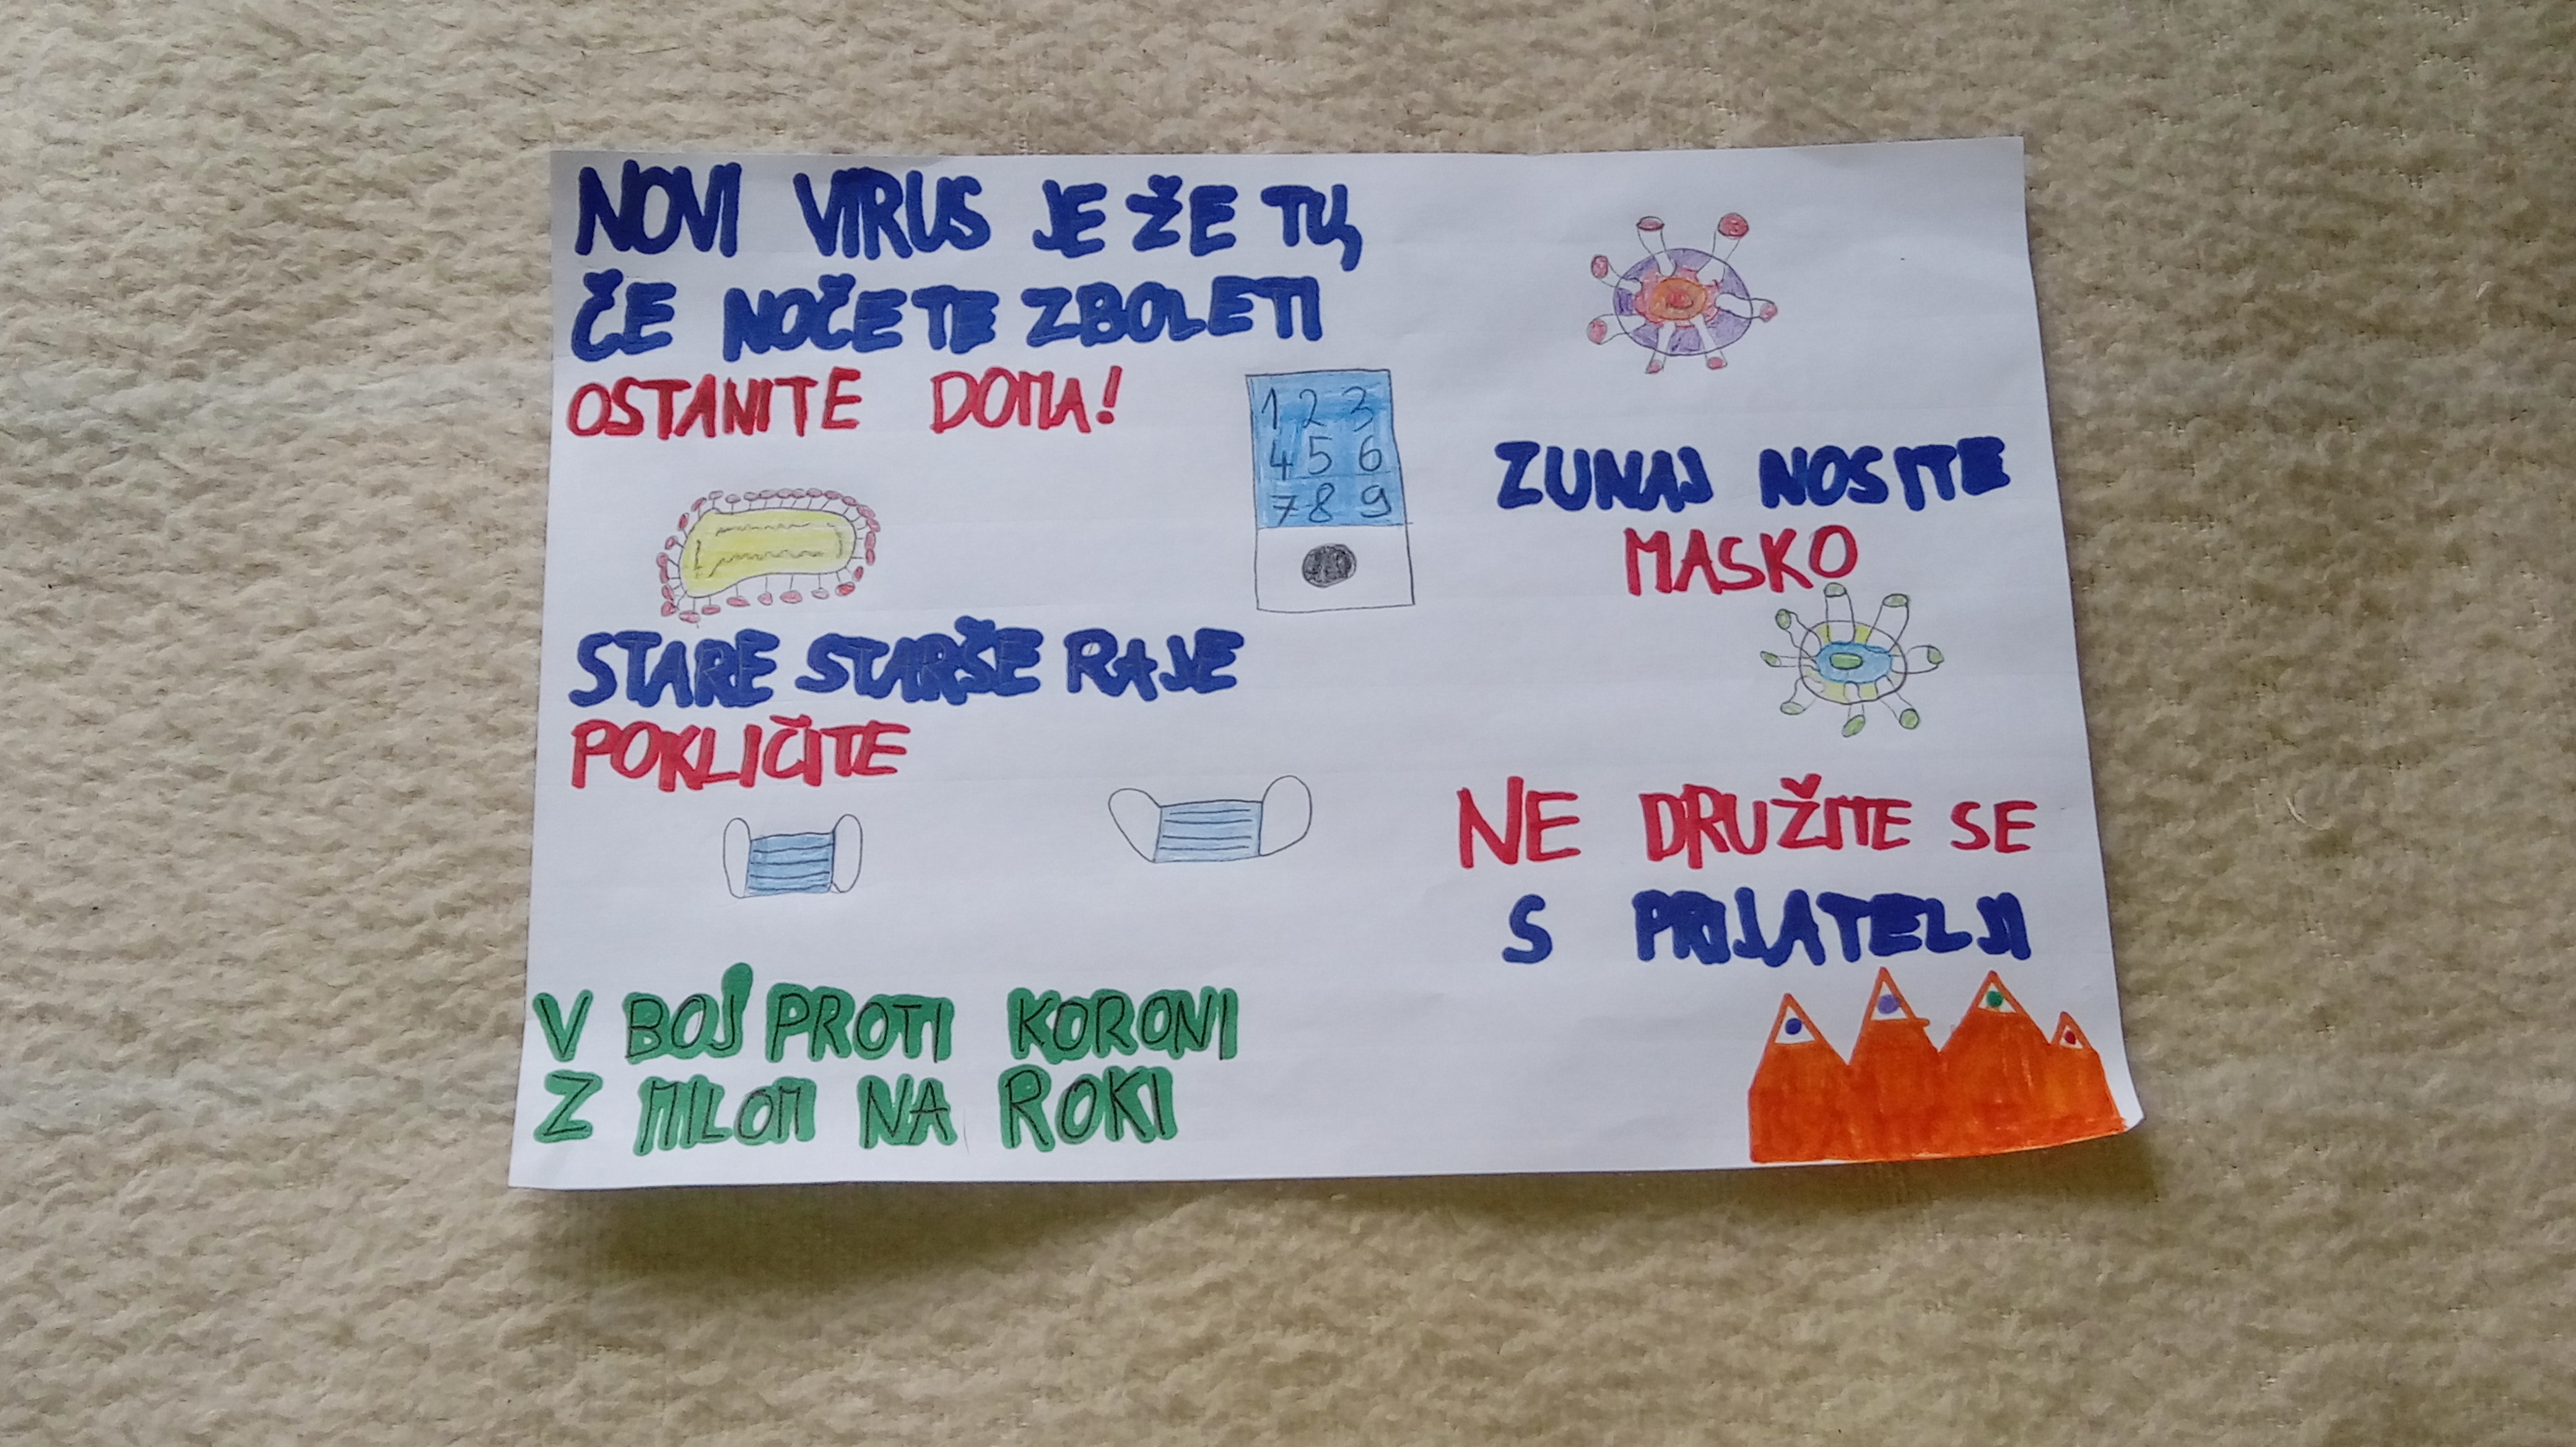 NOVI VIRUS JE ŽE TU,
ČE NOČETE ZBOLETI
OSTANITE DOMA!
1 2 3
4 5 6
7 8 9
STARE STARŠE RAJE
POKLIČITE
ZUNAJ NOSITE
MASKO
NE DRUŽITE SE
S PRIJATELJI
V BOJ PROTI KORONI
Z MILOM NA ROKI